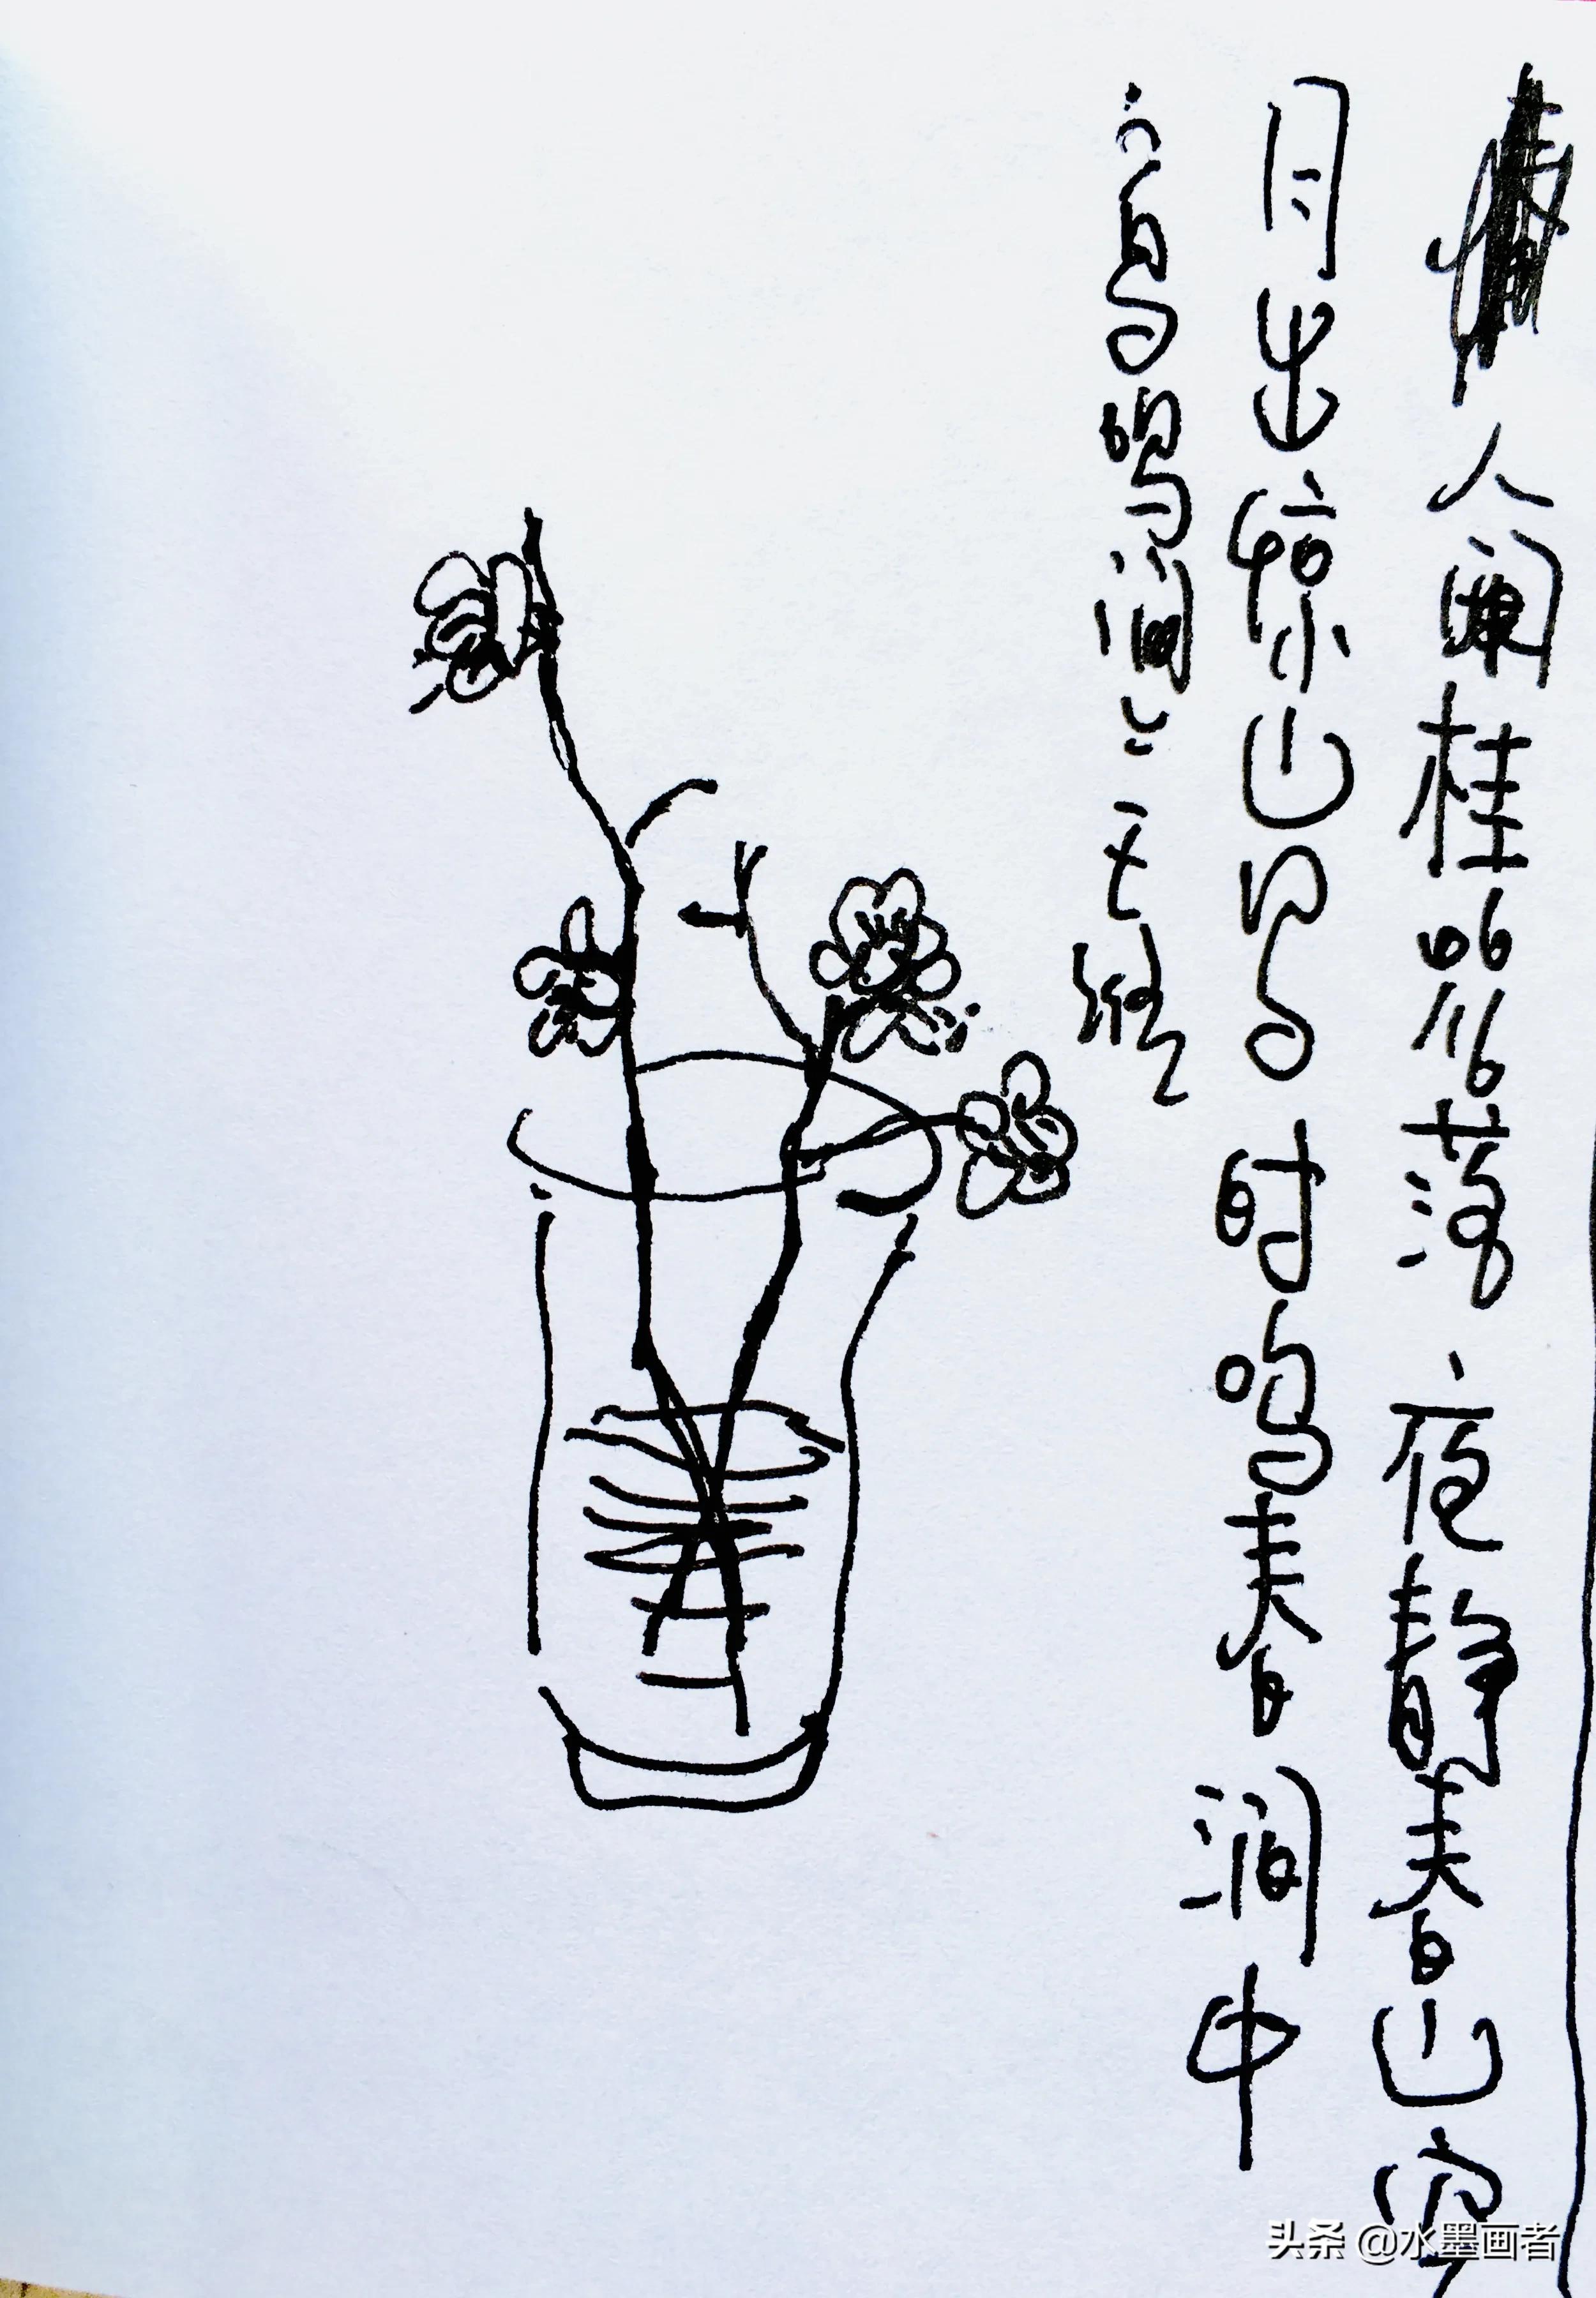 人闲桂花落夜静春山空
月出惊山鸟时鸣春涧中
鸟鸣涧 王维
头条 @水墨画者